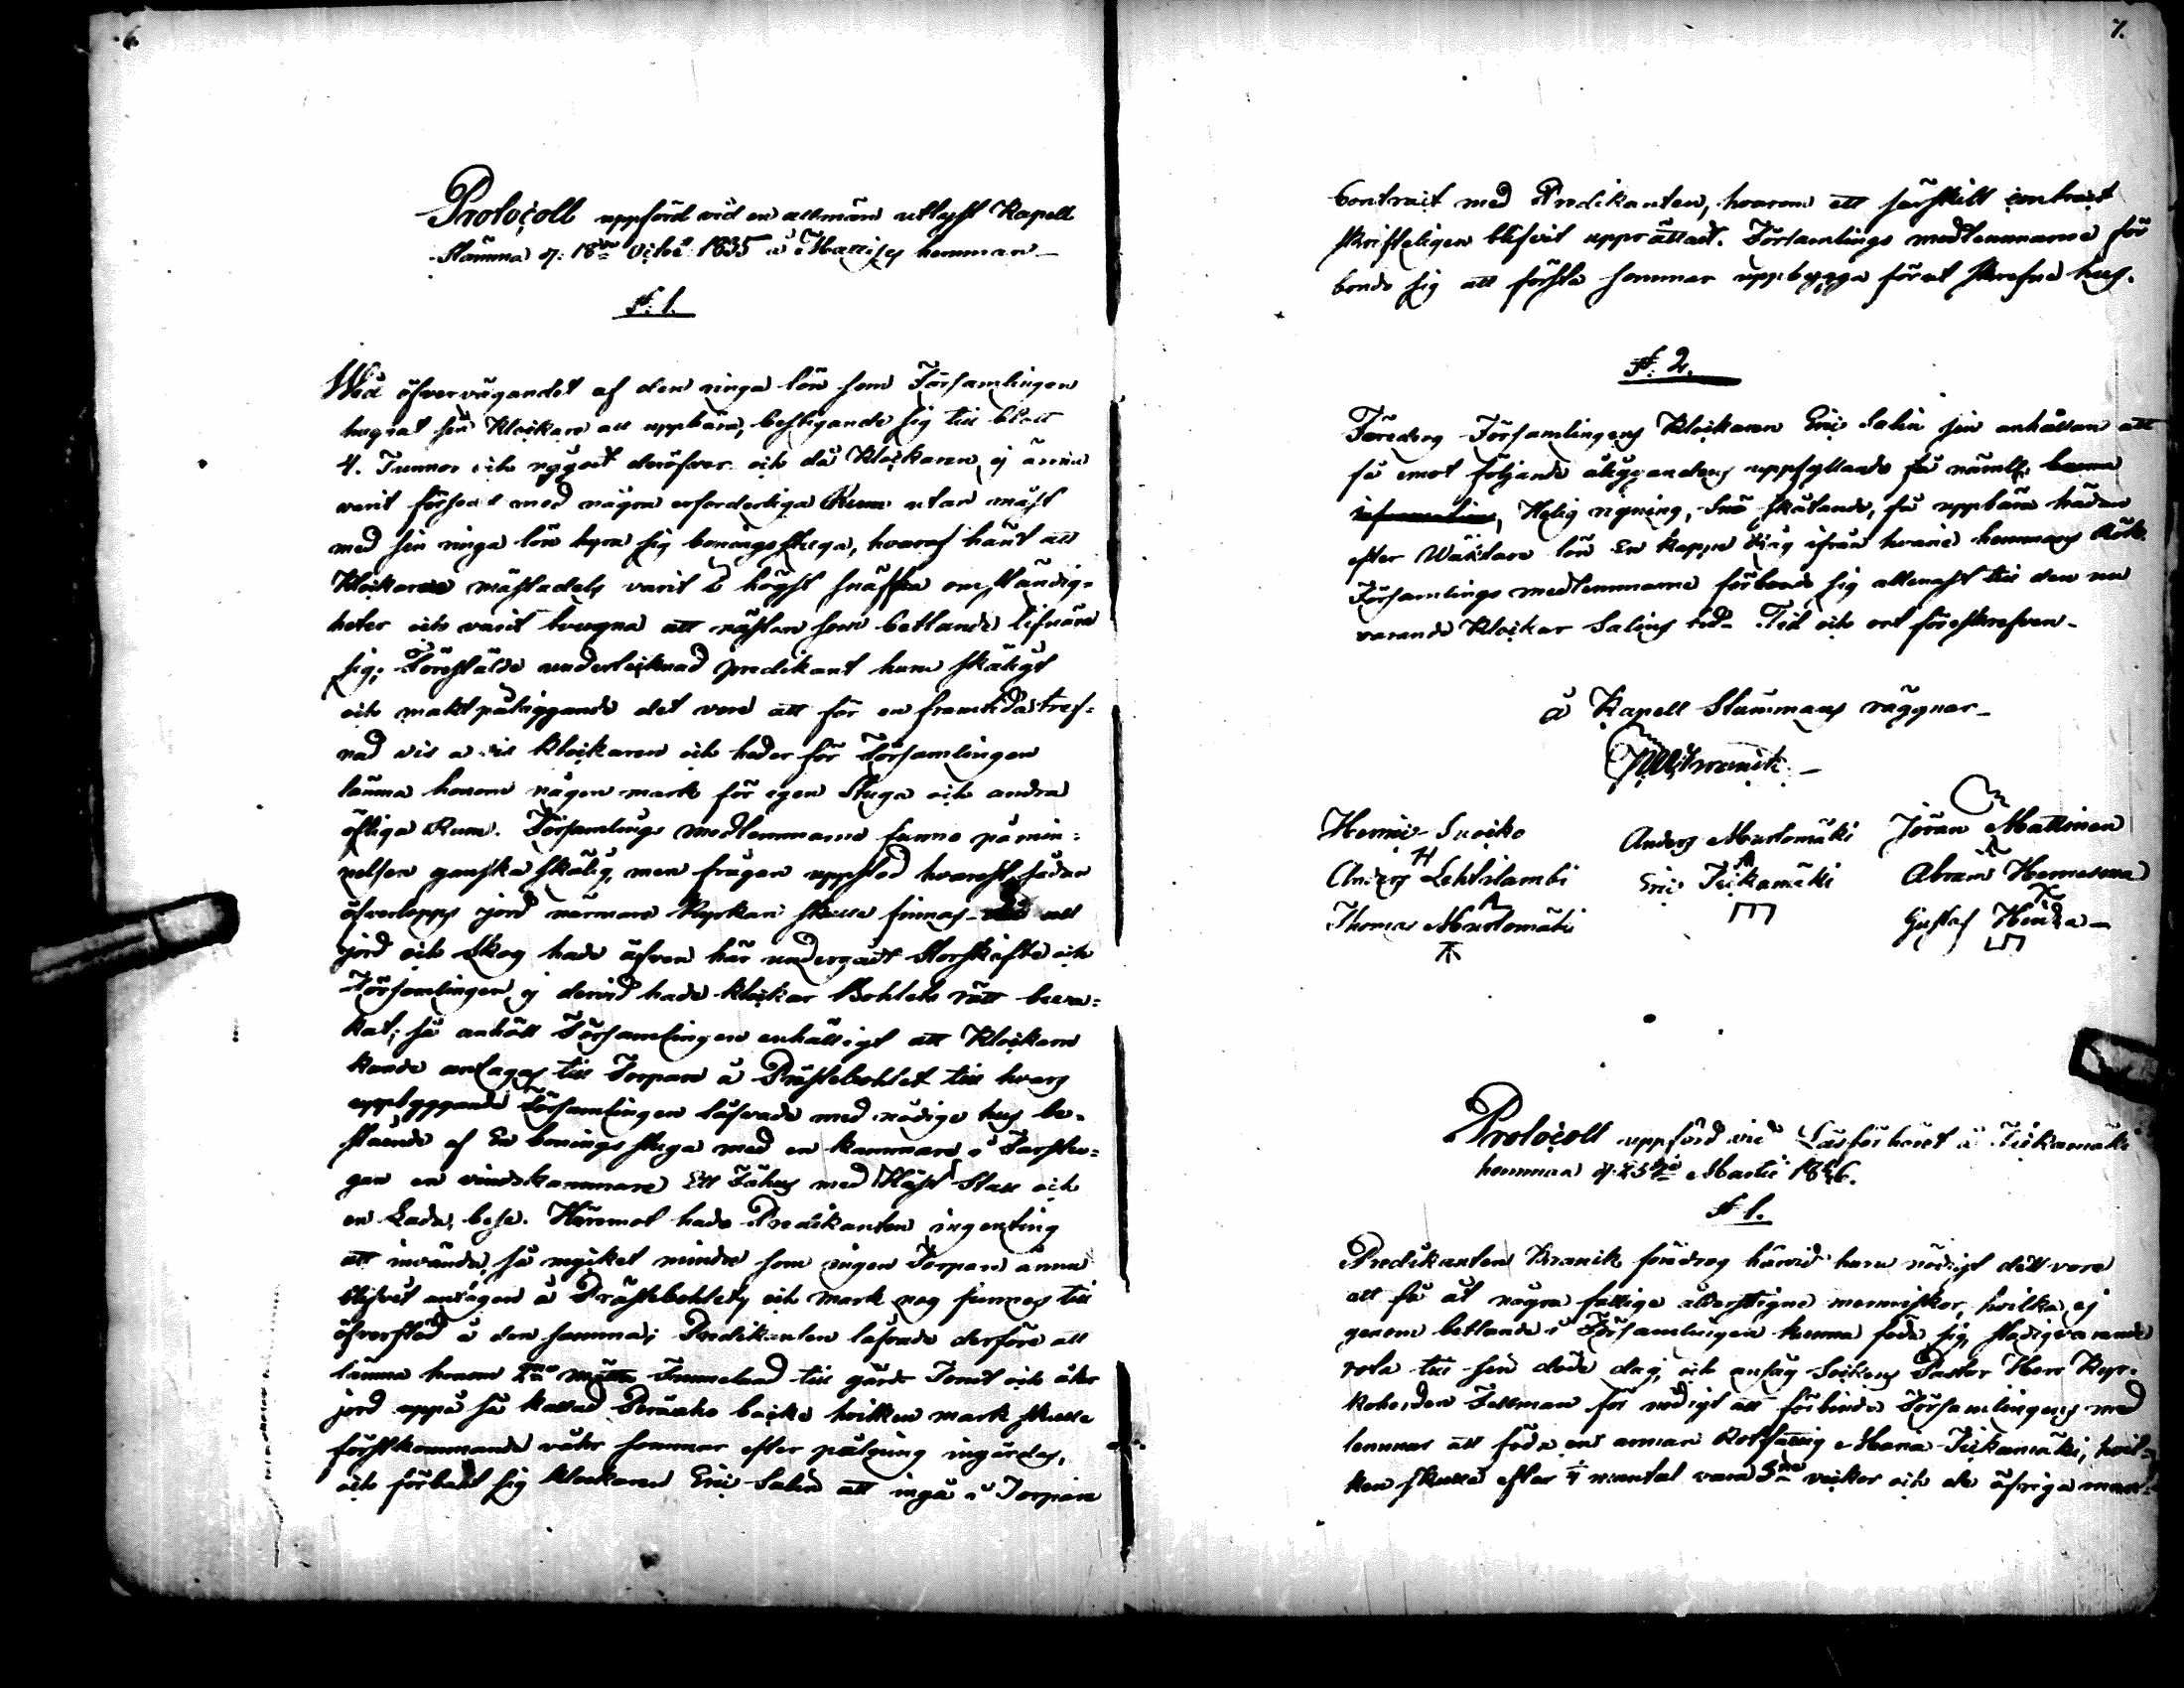 6.
Protocoll uppförd vid en allmän utlyst Kapell
Stämma d: 18de Octob: 1835 å Mattises hemman
§. 1.
Wid öfvervägandet af den ringa lön som Församlingen
hugnat sin Klockare att uppbära, bestigande sig till blott
4. Tunnor och nyget deröfver och då Klockaren ej ännu
varit försedt med några erforderliga Rum utan måst
med sin ringa lön hyra sig boningsstuga, hvaraf händt att
Klockaren mästadels varit i högst knappa omständig=
heter och varit tvugna att nästan som betlande lifnära
sig; Föreställde undertecknad predikant huru skäligt
och maktpåliggande det vore att för en framtida tref=
nad vis a vis Klockaren och heder för Församlingen
lämna honom någon mark för egen Stuga och andra
öfliga Rum. Församlings medlemmarne funno påmin=
nelsen ganska skälig, men frågan uppstod hvarest sådan
öfverlopps jord närmare Kyrkan skulle finnas att
jord och Skog hade äfven här undergådt Storskifte och
Församlingen ej dervid hade Klockar Bohlets rätt beva=
kat; så anhöll Församlingen enhälligt att Klockaren
kunde antagas till Torpare å Prästebohlet till hvars
uppbyggande Församlingen låfvade med nödige hus be=
stående af En bonings stuga med en kammare i Farstu=
gan en vindskammare Ett Fähus med Häst Stall och
en Lada, bese. Häremot hade Predikanten ingenting
att invända, så mycket mindre som ingen Torpare ännu
blifvit antagen å Prästebohlet och mark nog finnes till
öfverflöd å den samma; Predikanten låfvade derföre att
lämna honom 2ne Tunneland till gårds Tomt och åker
jord uppå så kallad Peräaho backe hvilken mark skulle
förstkommande vår sommar efter pålning ingärdes,
och förband sig klockaren Eric Salin att ingå i Torpare
7.
Contract med Predikanten, hvarom ett särskilt contract
skrifteligen blifvit upprättadt. Församlings medlemmarne för
bondo sig att första sommar uppbygga förut skrefne hus.
§. 2.
Föredrog Församlingens Klockaren Eric Salin sin anhållan att
få emot följande åliggandens uppfyllande så nämll.
Helig ringning, Snö skåtande, få uppbära hädan
efter Wäktare lön En kappe Råg ifrån hvarie hemmans Rök.
Församlings medlemmarne förbundo sig allenast till den nu
varande Klockar Salins tid. Tid och ort föreskrefven.
å Kapell Stämmans vägnar
Henric Suoiko
Anders Mustomäki
Jöran Mattinen
Anders Lehtilambi
Eric Jickamäki
Abram
Thomas Mustomäki
Gustaf
Protocoll uppförd vid Läsförhöret å Jickamäki
hemman d: 25te Martii 1836.
§ 1.
Predikanten Kranck föredrog härvid huru nödigt det vore
att få åt några fattige ålderstigne menniskor, hvilka ej
genom betlande i Församlingen kunna föda sig, stadigvarande
rota till sin döde dag, och ansåg Sockens Pastor Herr Kyr=
koherden Fellman för nödigt att förbinda Församlingens med
lemmar att föda en annan Rotfattig Maria Jickamäki, hvil=
ken skulle efter 1/4 mantal vara 3ne veckor och de öfriga mant=